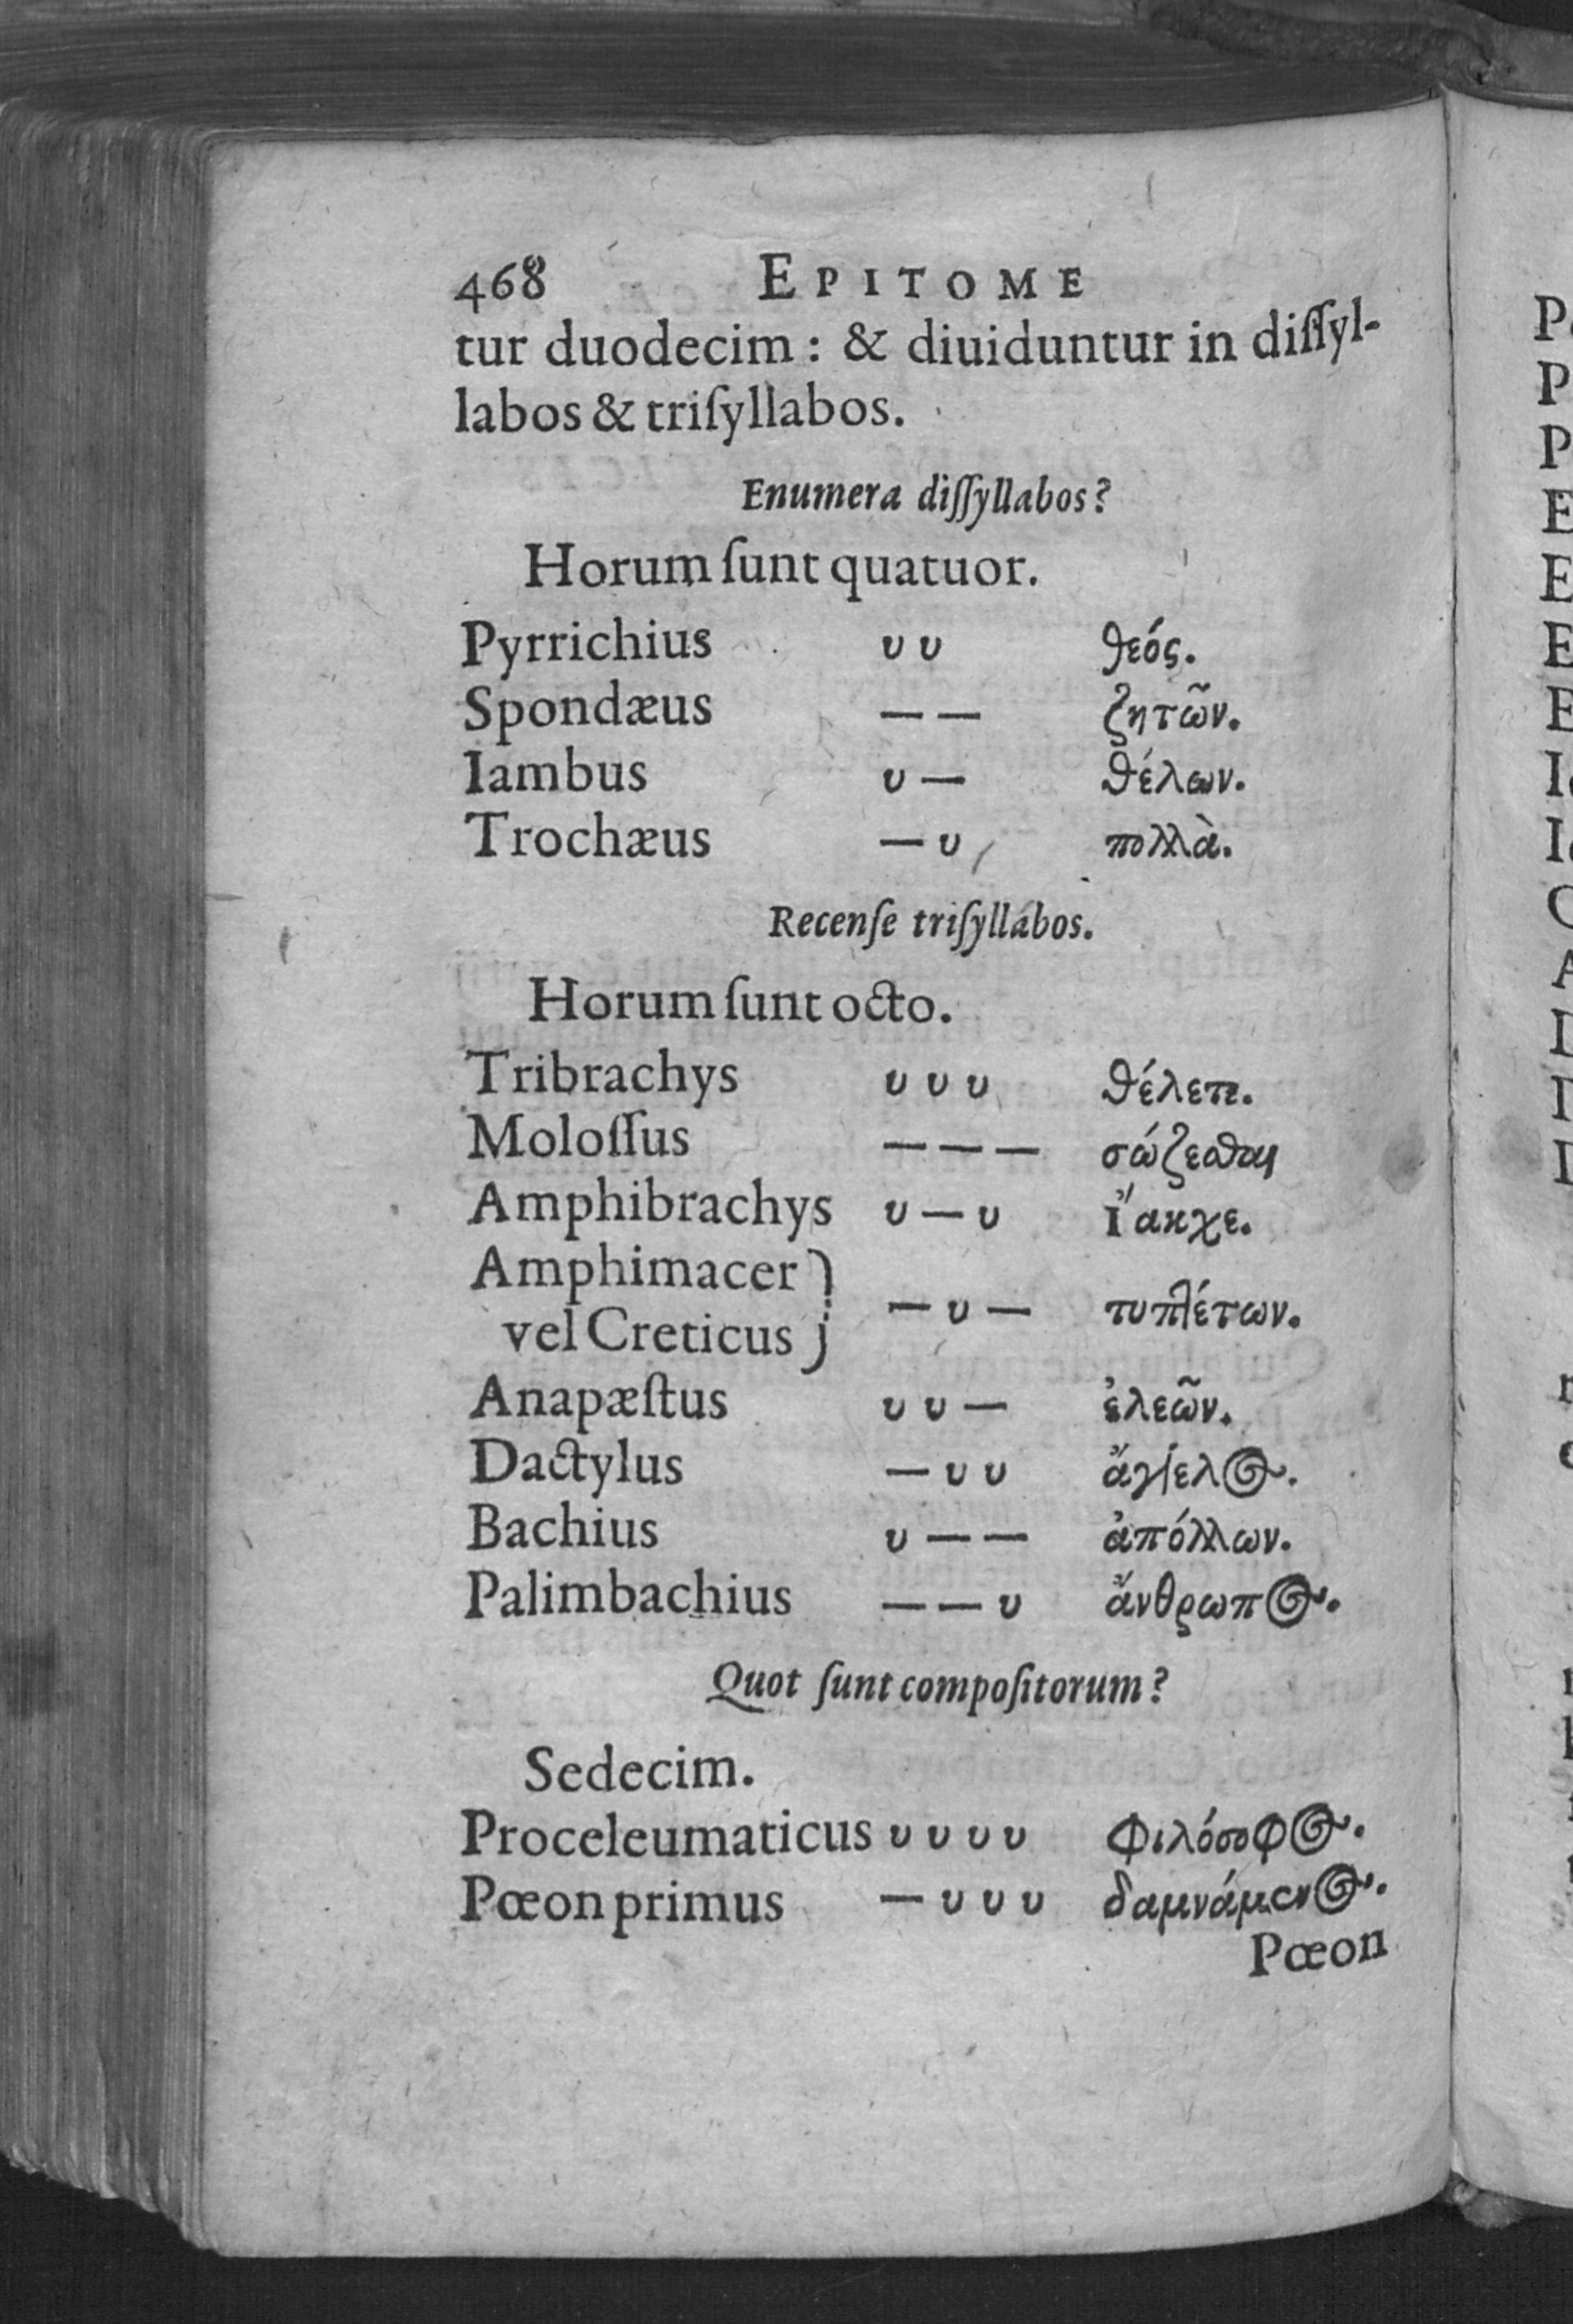 468 EPITOME
tur duodecim: & diuiduntur in diſſyl-
labos & triſyllabos.
Enumera diſſyllabos?
Horum ſunt quatuor.
Pyrrichius υ υ θεός.
Spondæus — — ζητῶν.
Iambus υ — θέλων.
Trochæus — υ πολλὰ.
Recenſe triſyllabos.
Horum ſunt octo.
Tribrachys υ υ υ θέλετε.
Moloſſus — — — σώζεσθαι
Amphibrachys υ — υ Ἴακχε.
Amphimacer }
vel Creticus } — υ — τυπτέτων.
Anapæſtus υ υ — ἐλεῶν.
Dactylus — υ υ ἄγγελος.
Bachius υ — — ἀπόλλων.
Palimbachius — — υ ἄνθρωπος.
Quot ſunt compoſitorum?
Sedecim.
Proceleumaticus υ υ υ υ φιλόσοφος.
Pœon primus — υ υ υ δαμνάμενος.
Pœon